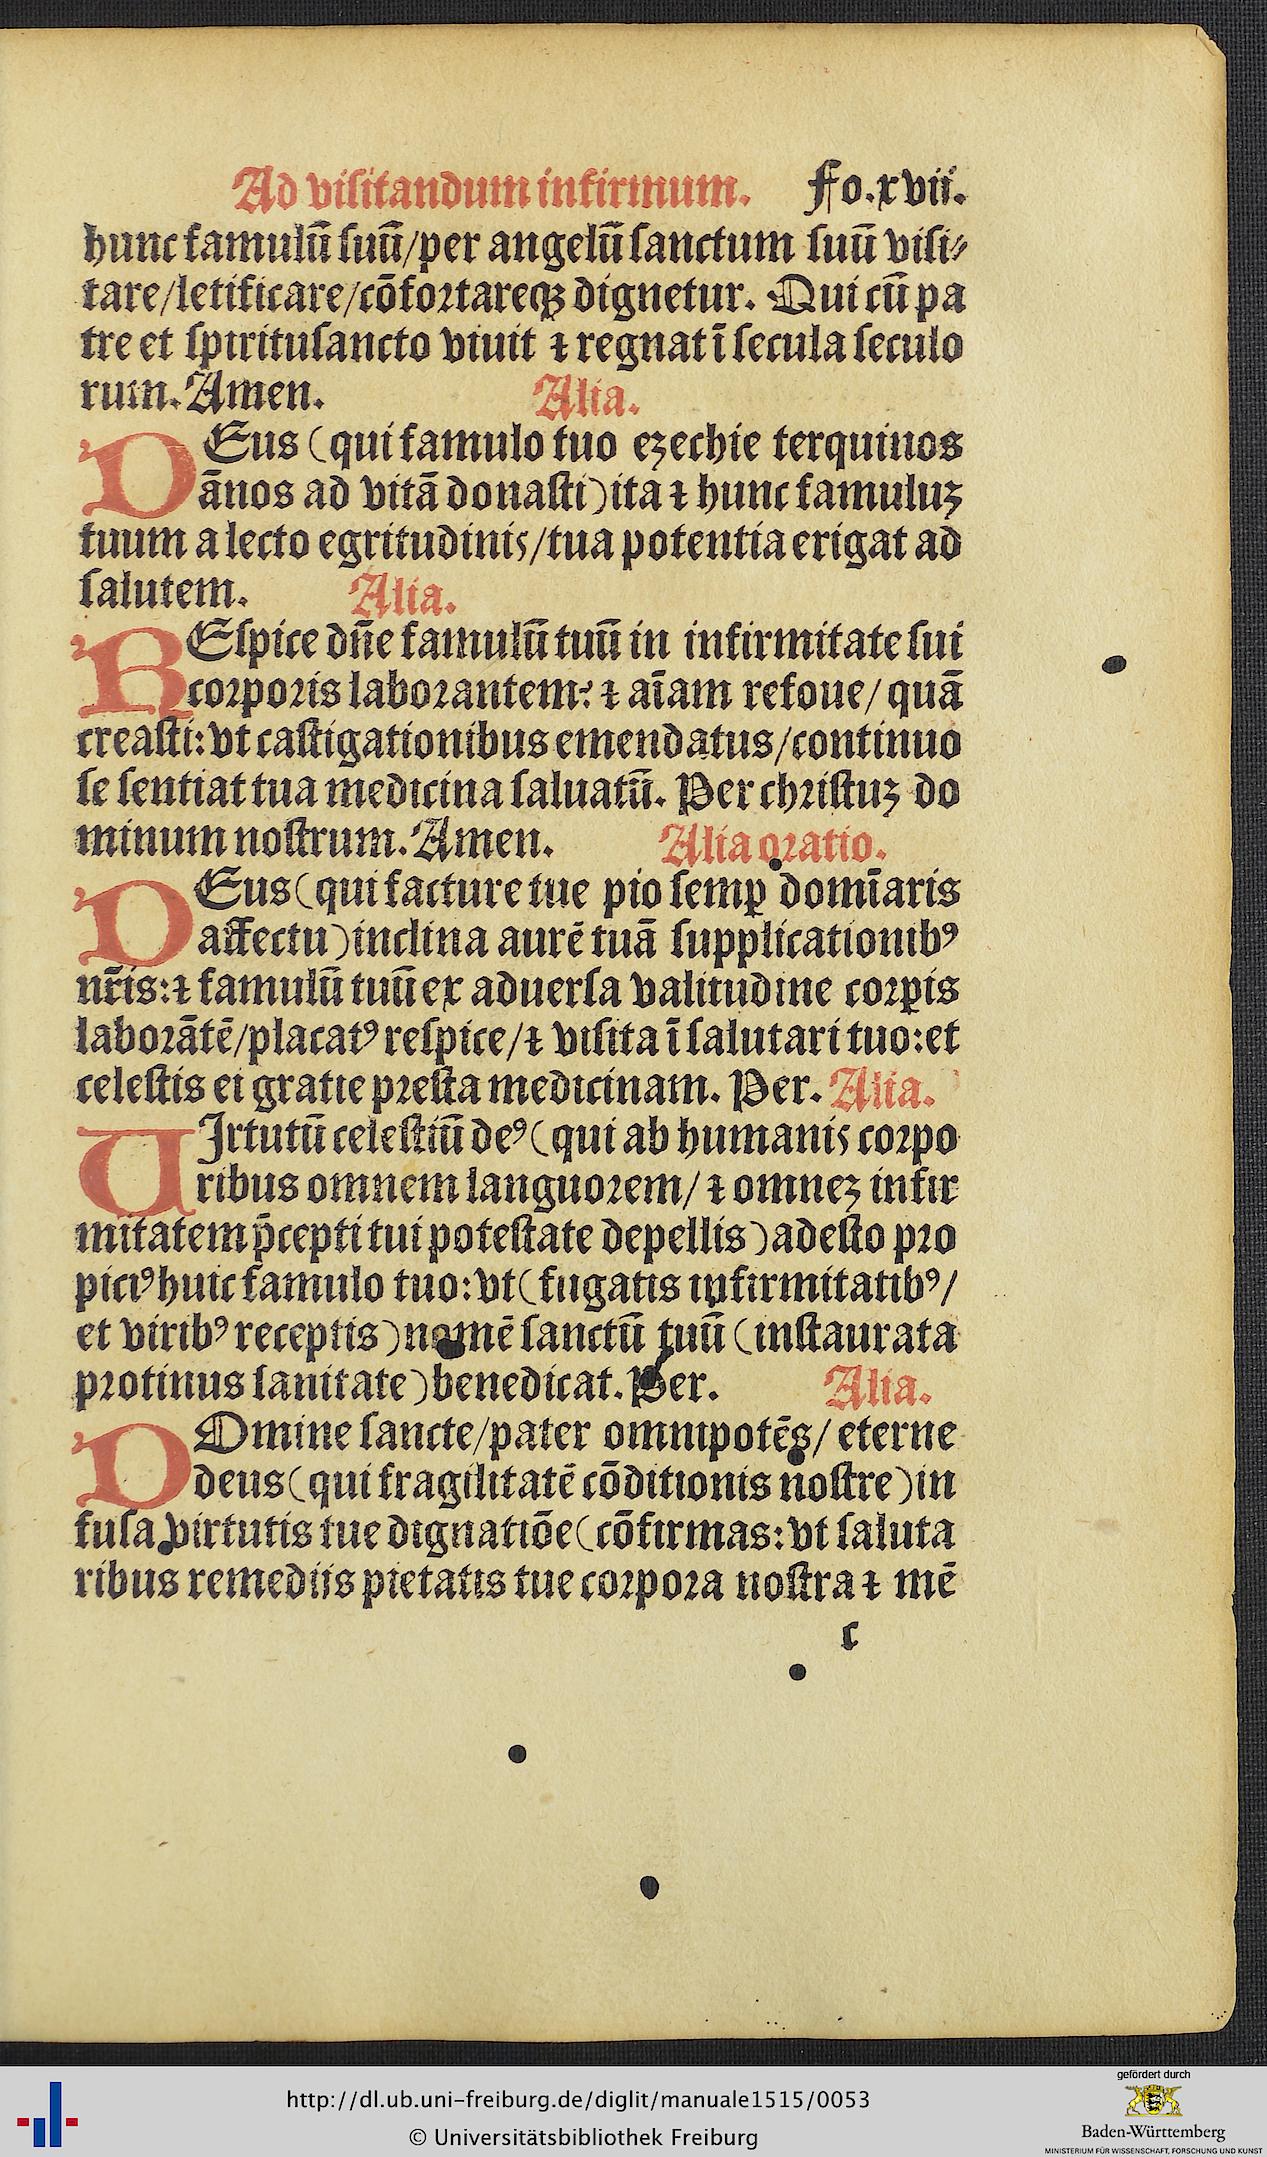 Ad visitandum infirmum. Fo.xvii.
hunc famulū suū/per angelū sanctum suū visi⸗
tare/letificare/cōfortareqꝫ dignetur. Qui cū pa
tre et spiritusancto viuit ⁊ regnat ī secula seculo
rum. Amen. Alia.
DEus (qui famulo tuo ezechie terquinos
ānos ad vitā donasti) ita ⁊ hunc famuluꝫ
tuum a lecto egritudinis/tua potentia erigat ad
salutem. Alia.
REspice dn̄e famulū tuū in infirmitate sui
corporis laborantem: ⁊ aīam refoue/ quā
creasti: vt castigationibus emendatus/continuo
se sentiat tua medicina saluatū. Per christuꝫ do
minum nostrum. Amen. Alia oratio.
DEus (qui facture tue pio semꝑ domīaris
affectu) inclina aurē tuā supplicationibꝰ
nr̄is: ⁊ famulū tuū ex aduersa valitudine corꝑis
laborātē/placatꝰ respice/⁊ visita ī salutari tuo: et
celestis ei gratie presta medicinam. Per. Alia.
VIrtutū celestiū deꝰ (qui ab humanis corpo
ribus omnem languorem/ ⁊ omneꝫ infir
mitatem p̄cepti tui potestate depellis) adesto pro
piciꝰ huic famulo tuo: vt (fugatis infirmitatibꝰ/
et viribꝰ receptis) nomē sanctū tuū (instaurata
protinus sanitate) benedicat. Per. Alia.
DOmine sancte/pater omnipotēs/ eterne
deus (qui fragilitatē cōditionis nostre) in
fusa virtutis tue dignatiōe (cōfirmas: vt saluta
ribus remediis pietatis tue corpora nostra ⁊ mē
c
http://dl.ub.uni-freiburg.de/diglit/manuale1515/0053
© Universitätsbibliothek Freiburg
gefördert durch
Baden-Württemberg
MINISTERIUM FÜR WISSENSCHAFT, FORSCHUNG UND KUNST